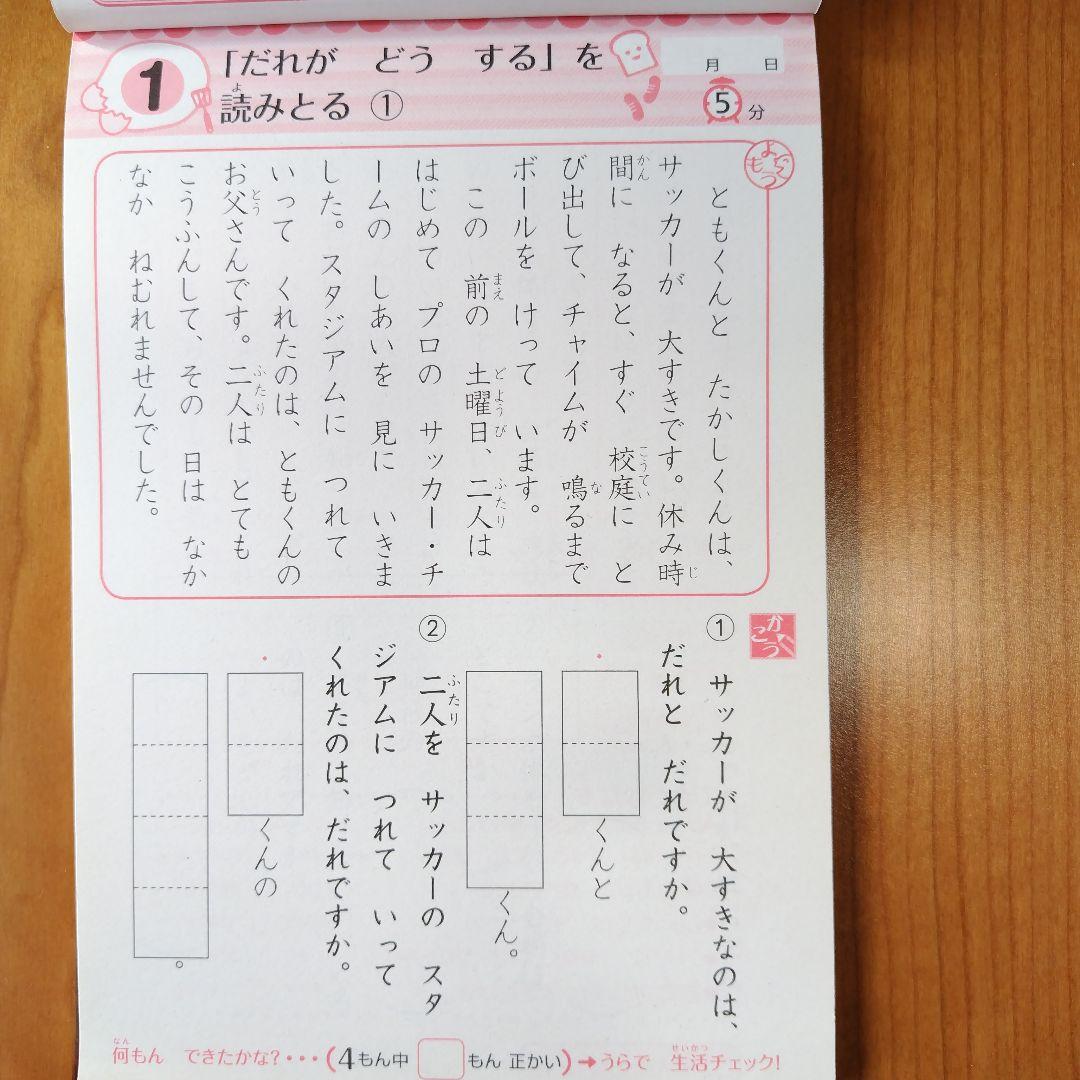 1
「だれが どう する」を
読みとる ①
よ
月 日
5分
よもう
ともくんと たかしくんは、
サッカーが 大すきです。休み時
間に なると、すぐ 校庭に と
び出して、チャイムが 鳴るまで
ボールを けって います。
この 前の 土曜日、二人は
はじめて プロの サッカー・チ
ームの しあいを 見に いきま
した。スタジアムに つれて
いって くれたのは、ともくんの
お父さんです。二人は とても
こうふんして、その 日は なか
なか ねむれませんでした。
じ
かん
こうてい
な
まえ
どようび
ふたり
とう
ふたり
かこう
① サッカーが 大すきなのは、
だれと だれですか。
くんと
くん。
② 二人を サッカーの スタ
ジアムに つれて いって
くれたのは、だれですか。
ふたり
くんの
。
何もん できたかな?・・・(4もん中 もん 正かい)→うらで 生活チェック!
なん
せいかつ